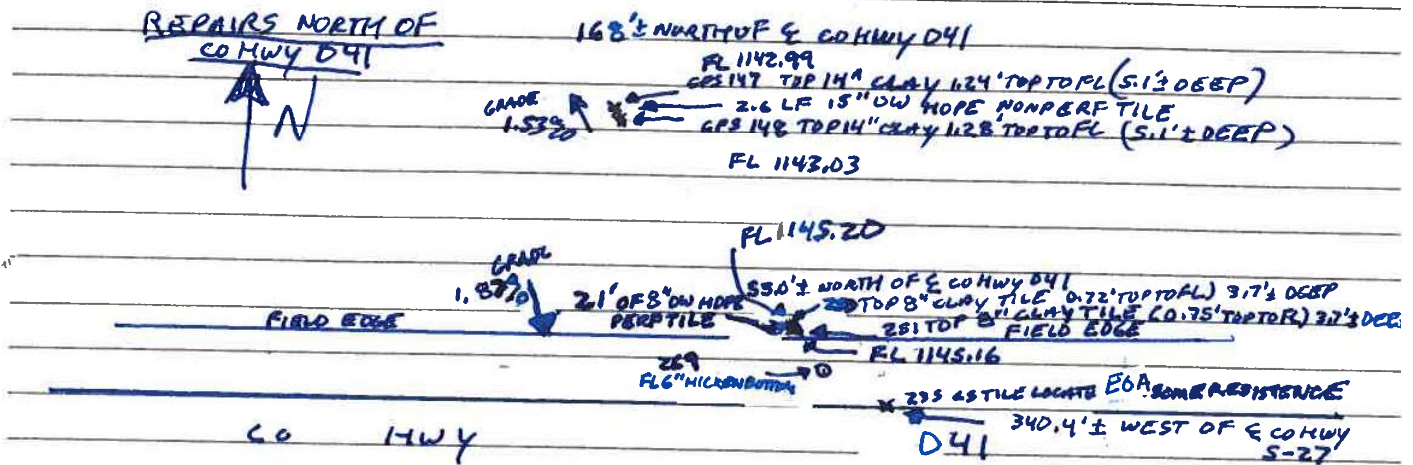 REPAIRS NORTH OF
CO HWY D41
N
168'± NORTH OF ℄ CO HWY D41
FL 1142.99
GPS 147 TOP 14" CLAY 1.24' TOP TO FL (5.1'± DEEP)
GRADE
1.53%
2.6 LF 15" DW HDPE NONPERF TILE
GPS 148 TOP 14" CLAY 1.28' TOP TO FL (5.1'± DEEP)
FL 1143.03
FL 1145.20
GRADE
1.87%
55.0'± NORTH OF ℄ CO HWY D41
TOP 8" CLAY TILE 0.72' TOP TO FL) 3.7'± DEEP
2.1' OF 8" DW HDPE
PERF TILE
281 TOP 8" CLAY TILE (0.75' TOP TO FL) 3.7'± DEE
FIELD EDGE
FIELD EDGE
FL 1145.16
269
FL 6" HICKENBOTTOM
235 GS TILE LOCATE EOA SOME RESISTENCE
340.4'± WEST OF ℄ CO HWY
S-27
CO HWY
D41